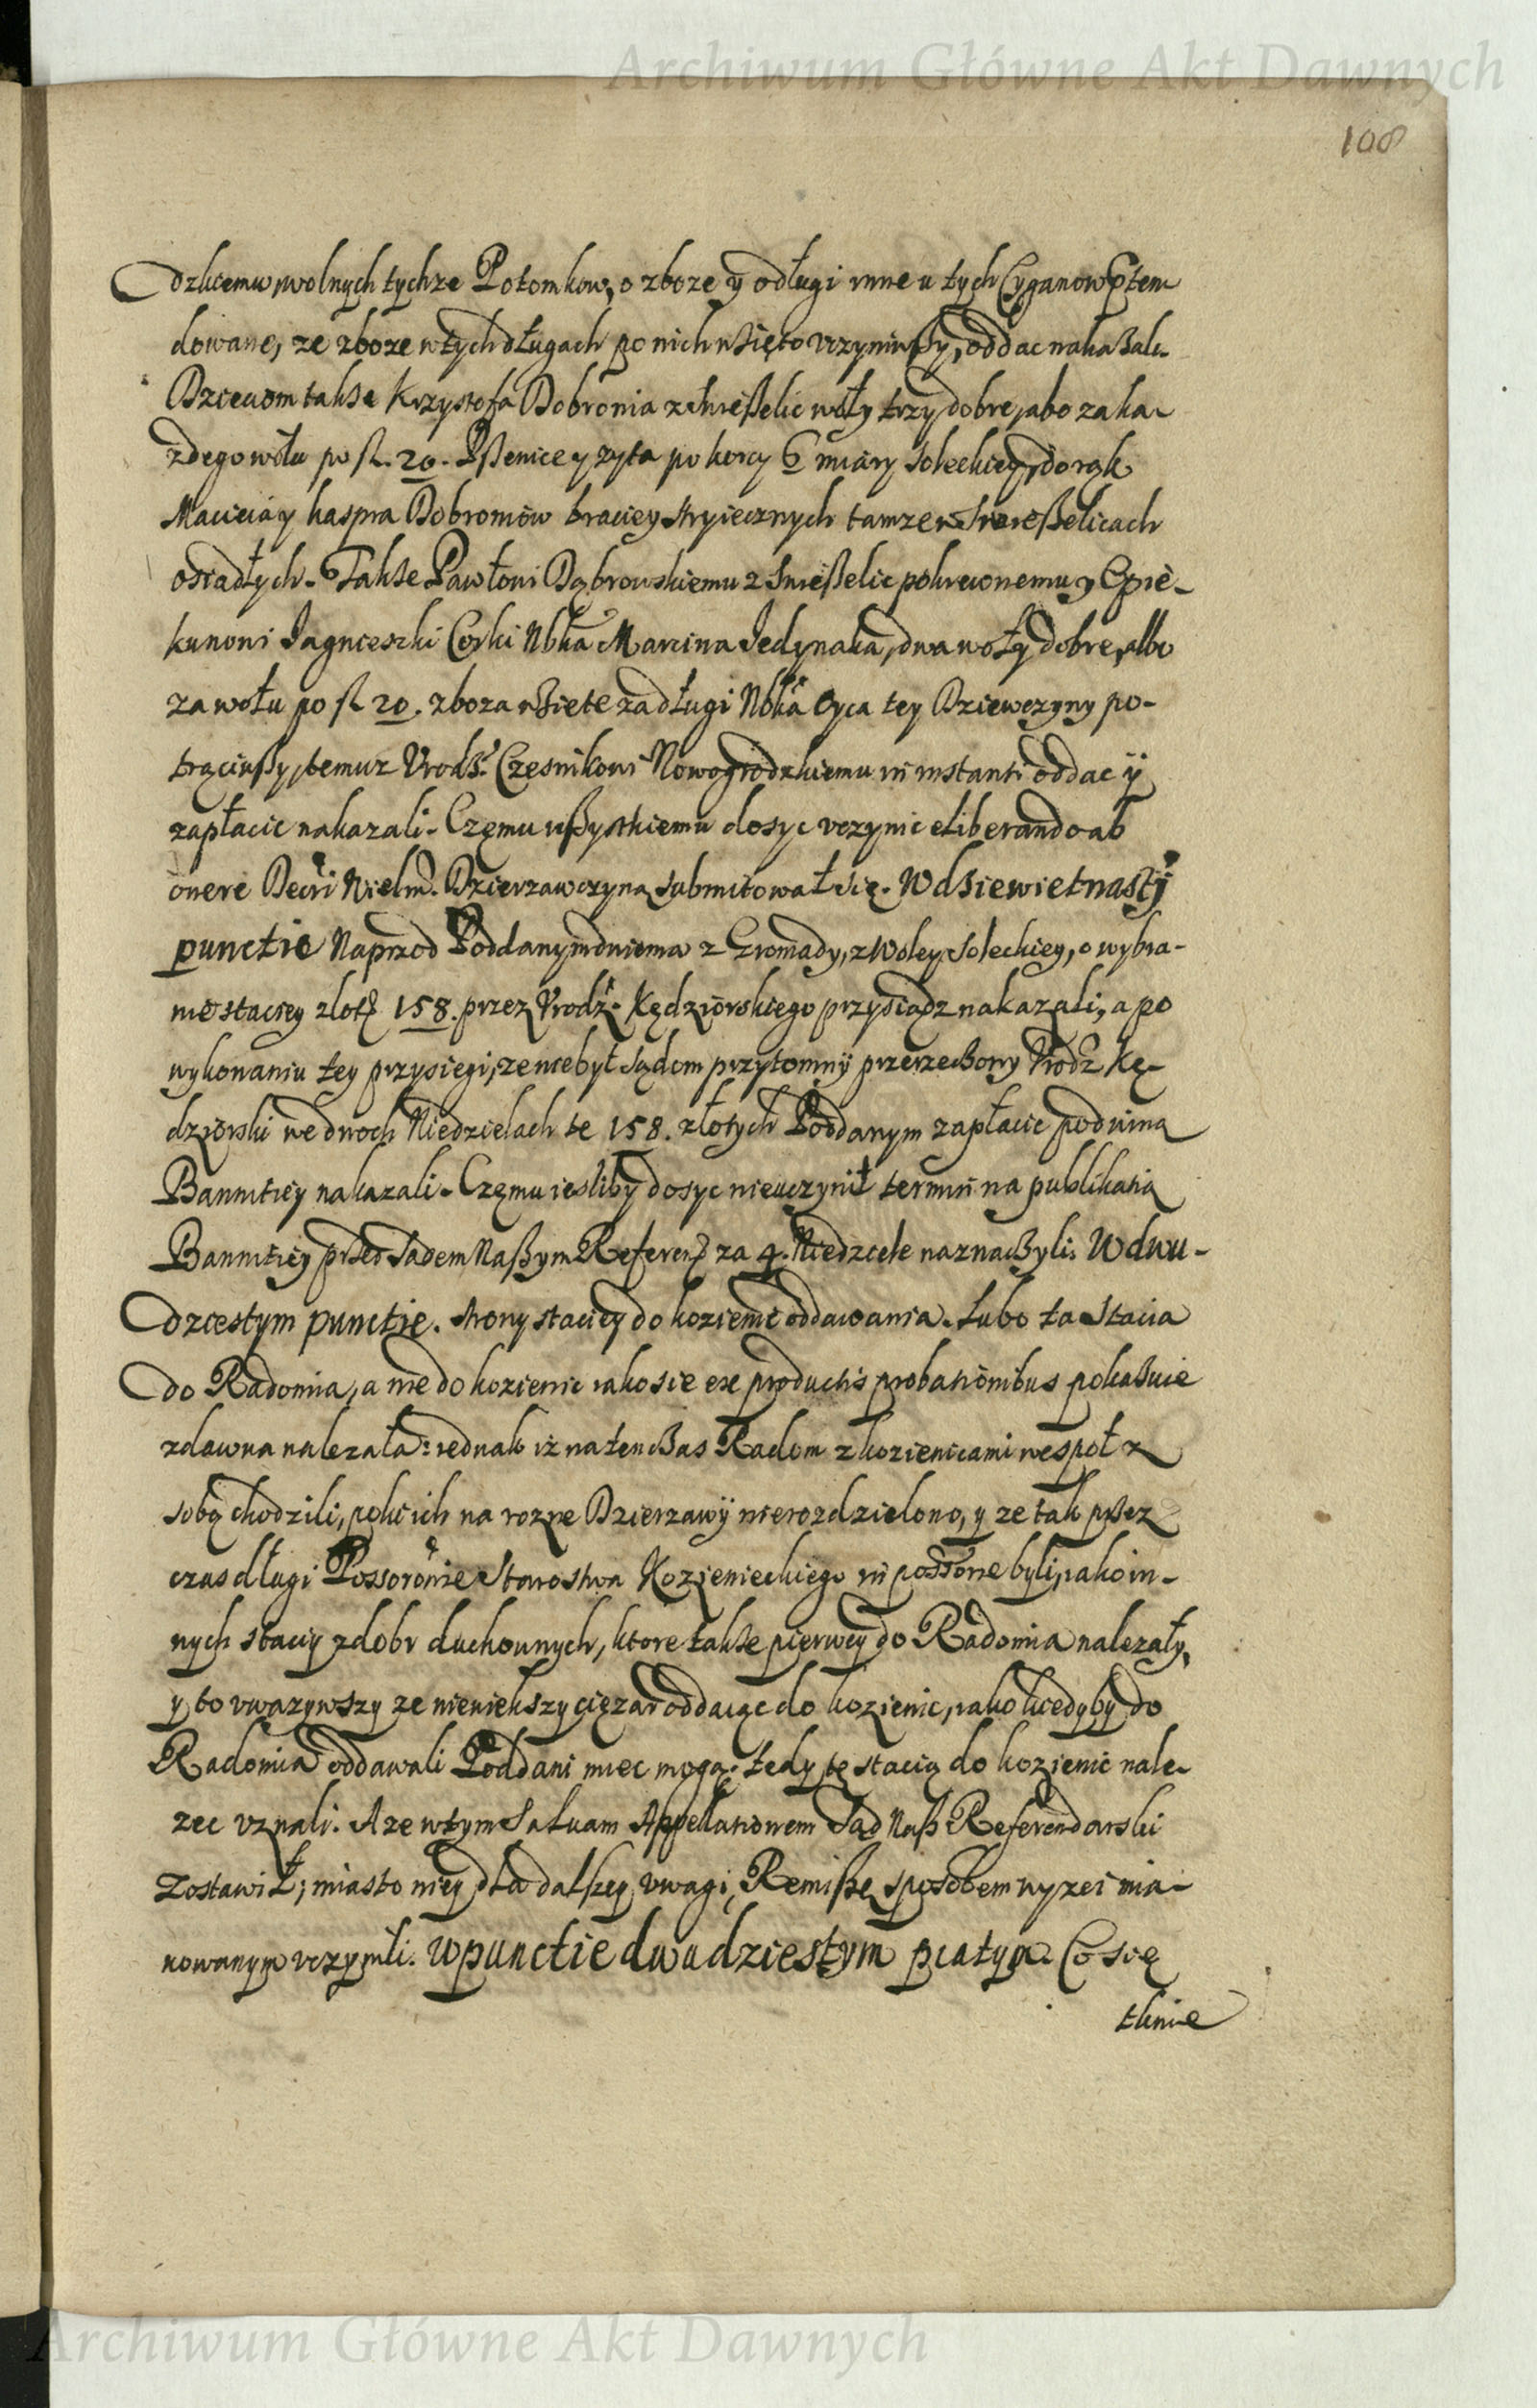 Archiwum Główne Akt Dawnych
108
dzkiemu, wolnych tychze Potomkow, o zboze y odługi inne u tych Cyganow
dowane, ze zboze wtych długach po nich wzięto vczyniwszy, oddac nakazali.
Dzieciom takze Krzysztofa Dobronia z woły trzy dobre, abo za ka-
zdego wołu po fl. 20. Pszenice y zyta po korcy 6 miary Soleckiey, do rąk
Macieia y Kaspra Dobroniow braciey stryiecznych tamze
osiadłych. Takze Pawłowi Dąbrowskiemu z pokrewnemu y Opie-
kunowi Jagnieszki Corki Nbka Marcina Jedynaka, dwa woły dobre, albo
za wołu po fl 20. zboza wziete za długi Nbka Oyca tey Dziewczyny po-
trąciwszy, temuz Vrodz. Czesnikowi Nowogrodzkiemu in instanti oddac ÿ
zapłacic nakazali. Czemu wszystkiemu dosyc vczynic eliberando ab
onere Decri Wielm. Dzierzawczyna submitował się. W dziewietnastÿ
punctie Naprzod Poddanym dwiema z Gromady, z Woley Soleckiey, o wybra-
nie staciey złot 158. przez Vrodz. Kędziorskiego przysiądz nakazali, a po
wykonaniu tey przysiegi, ze nie był Sądom przytomnÿ przerzeczony Vrodz Kę-
dziorski we dwoch Niedzielach te 158. złotych Poddanym zapłacic pod winą
Bannitiey nakazali. Czemu iesliby dosyc nieuczynił termin na publikatią
Bannitiey przed Sadem Naszym Referen za 4. Niedziele naznaczyli. W dwu-
dziestym punctie. strony staciey do kozienic oddawania. Lubo ta Stacia
do Radomia, a nie do kozienic iako sie ex productis probationibus pokazuie
zdawna nalezała: iednak iz na ten czas Radom z kozienicami wespoł z
sobą chodzili, poki ich na rozne Dzierzawÿ nierozdzielono, y ze tak przez
czas długi Possorowie Starostwa Kozienieckiego in possone byli, iako in-
nych staciy z dobr duchownych, ktore takze pierwey do Radomia nalezały,
y to vwazywszy ze niewiekszy cięzar oddaiąc do kozienic, iako kiedyby do
Radomia oddawali Poddani miec mogą: tedy tę stacią do kozienic nale-
zec vznali. A ze wtym Saluam Appellationem Sąd Nasz Referendarski
zostawił; miasto niey dla dalszey vwagi, Remissę sposobem wyzei mia-
nowanym vczynili. W punctie dwudziestym piatym. Co się
tknie
Archiwum Główne Akt Dawnych